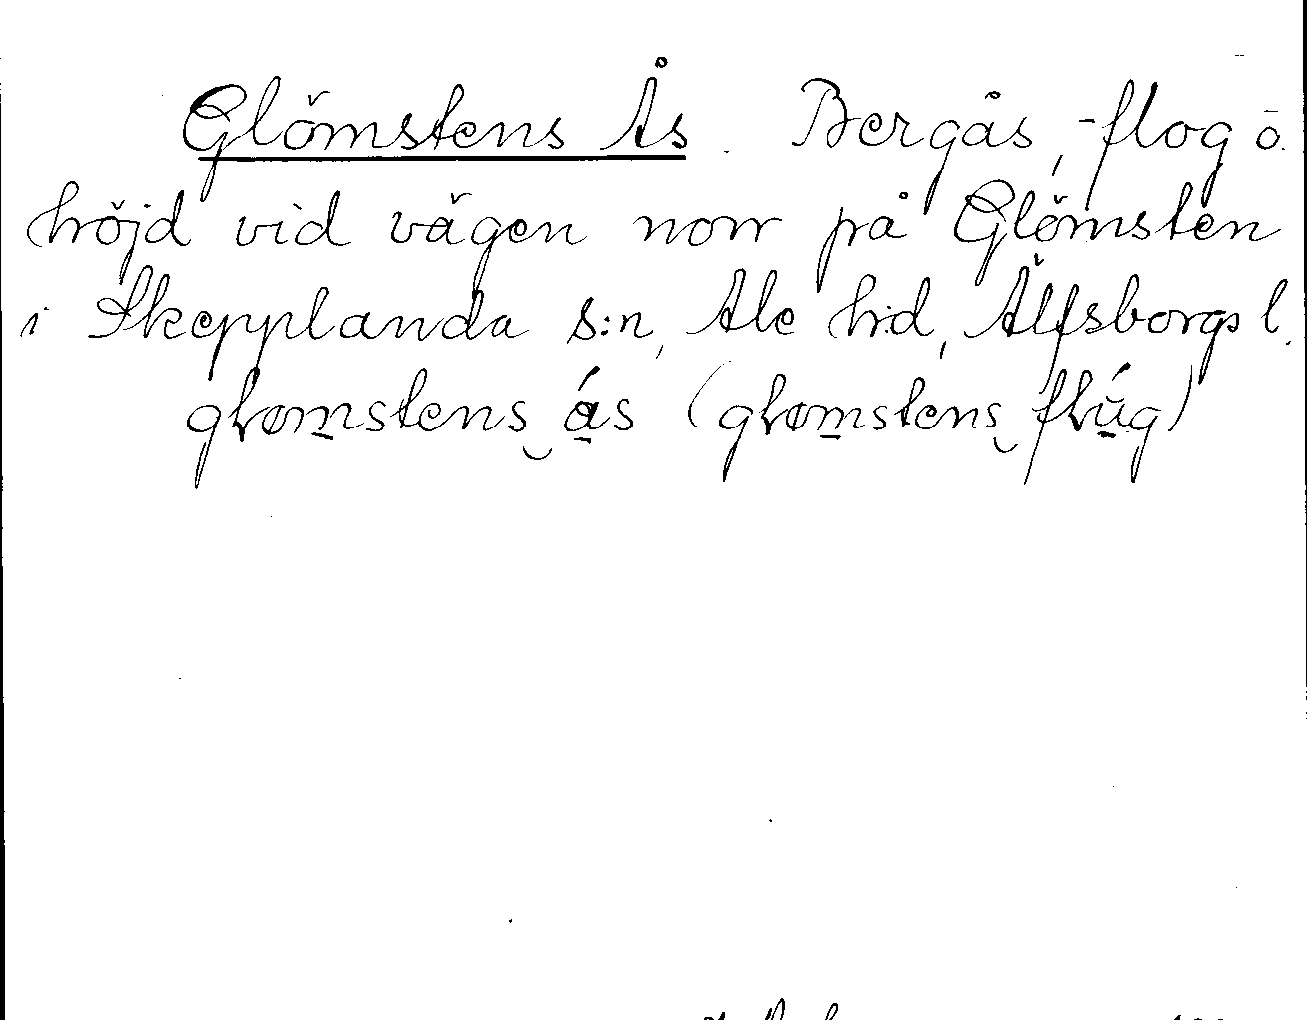 Glömstens Ås. Bergås, -flog o.
höjd vid vägen norr på Glömsten
i Skepplanda s:n, Ale hd, Älfsborgs l.
glømstens ás (glømstens flúg)